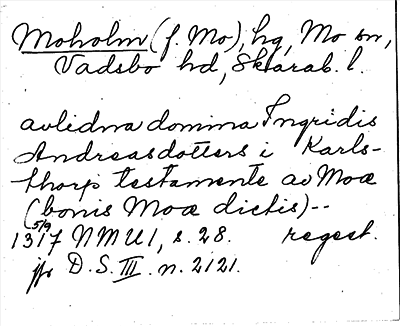 Moholm (f. Mo), hg, Mo sn,
Vadsbo hd, Skarab. l.
avlidna domina Ingridis
Andreasdotters i Karls-
thorp testamente av Moæ
(bonis Moæ dictis)--
5/9
1317 NMU1, s. 28. regest.
jfr D.S. III. n. 2121.